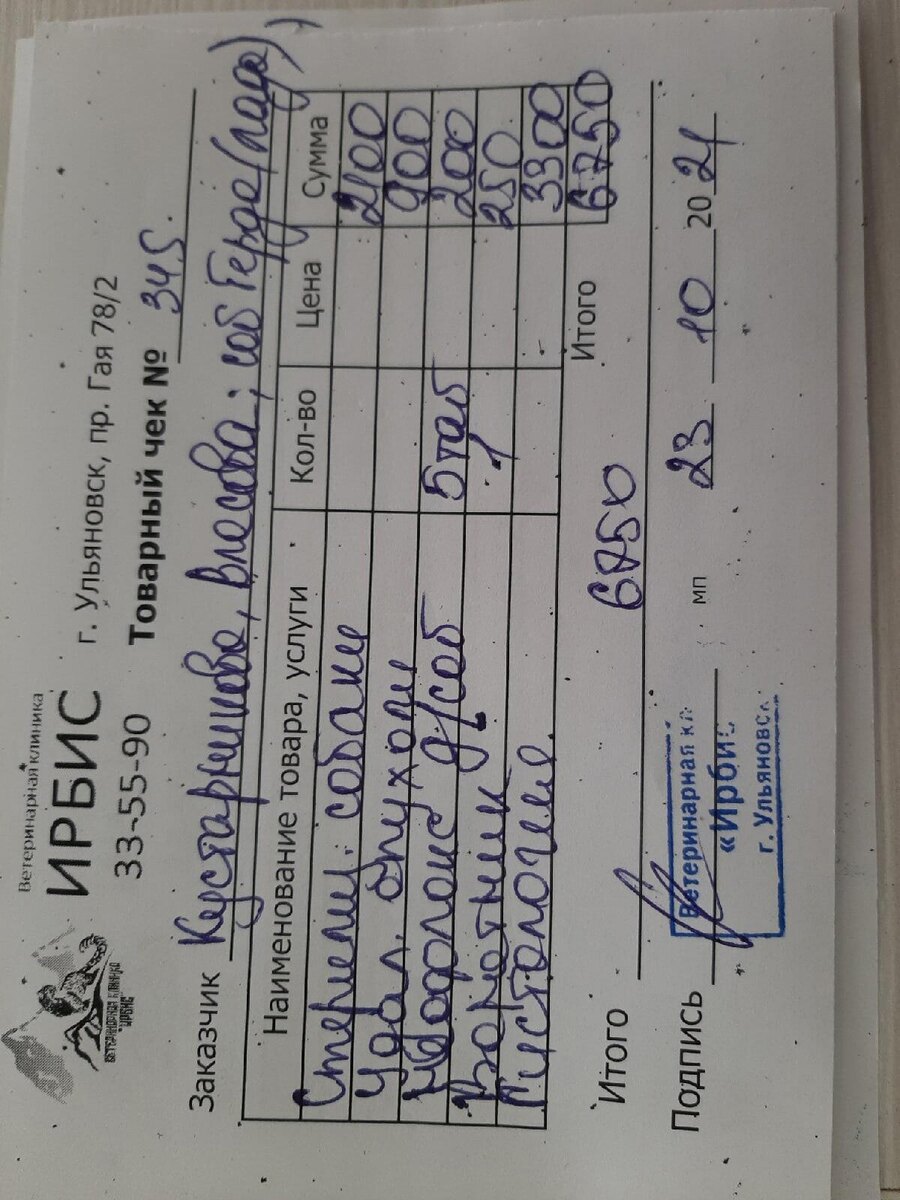 Ветеринарная клиника
ИРБИС
33-55-90
г. Ульяновск, пр. Гая 78/2
ВЕТЕРИНАРНАЯ КЛИНИКА
"ИРБИС"
Товарный чек № 345.
Заказчик Кустарникова, Власова; соб Герда (Лада)
Наименование товара, услуги Кол-во Цена Сумма
Стерилиз. собаки 2100
Удал. опухоли 900
д/соб 5 таб 200
Воротник 1 250
Гистология 3300
Итого 6750
Итого 6750
Подпись мп 23 10 20 21
Ветеринарная кл
«Ирбис
г. Ульяновск